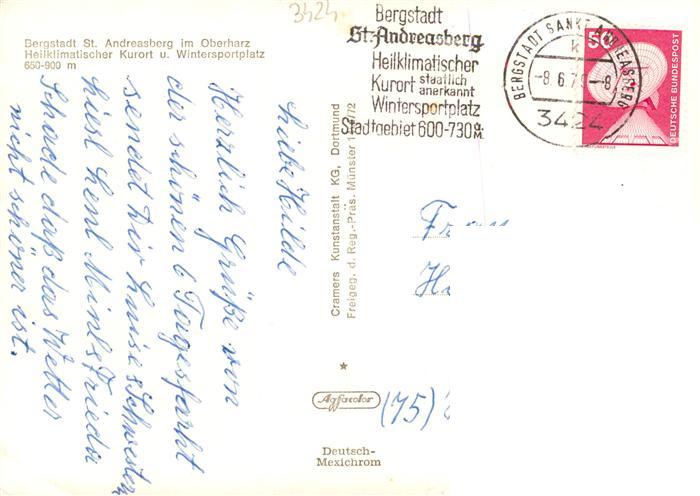 3424
Bergstadt St. Andreasberg im Oberharz
Heilklimatischer Kurort u. Wintersportplatz
650-900 m
Bergstadt
St. Andreasberg
Heilklimatischer
Kurort staatlich anerkannt
Wintersportplatz
Stadtgebiet 600-730
BERGSTADT SANKT ANDREASBERG
k
-8.6.7
-8
3424
50
DEUTSCHE BUNDESPOST
Liebe Hilde
Herzlich Grüße von
der schönen 6 Tagesfarht
sendet dir Luise Schwester
Liesl
Schade daß das Wetter
nicht schöner ist.
Cramers Kunstanstalt KG, Dortmund
Freigeg. d. Reg.-Präs. Münster
Agfacolor
Deutsch-
Mexichrom
(75)